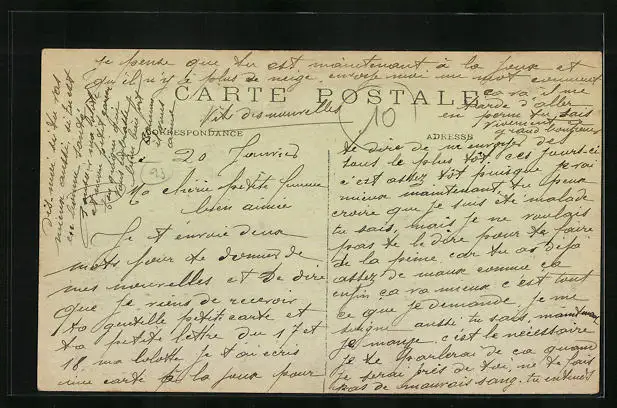 je pense que tu est maintenant à la Joux et
qu'il n'y a plus de neige, envoye moi un mot comment
ça va, il me
tarde d'aller
en perme tu sais
vivement
grand bonheur
Vite des nouvelles
CARTE POSTALE
10
CORRESPONDANCE
ADRESSE
20 Janvier
Ma chérie petite femme
bien aimée
Je t'envoie deux
mots pour te donner de
mes nouvelles et te dire
que je viens de recevoir
ta gentille petite carte et
ta petite lettre du 17 et
18, ma lolotte, je t'ai écris
une carte à la Joux pour
te dire de m'envoyer de
tous le plus tôt, ces jours-ci
c'est assez tôt puisque je vai
mieux maintenant, tu peux
croire que je suis été malade
tu sais, mais je ne voulais
pas te le dire pour te faire
de la peine car tu as déjà
assez de maux comme ça
enfin ça va mieux c'est tout
ce que je demande, je me
soigne aussi tu sais, maintenant
je mange, c'est le nécessaire
je te parlerai de ça quand
je serai près de toi, ne te fais
pas de mauvais sang, tu entends
Dit-moi si tu vas
mieux aussi, si tu est
en bonne santé